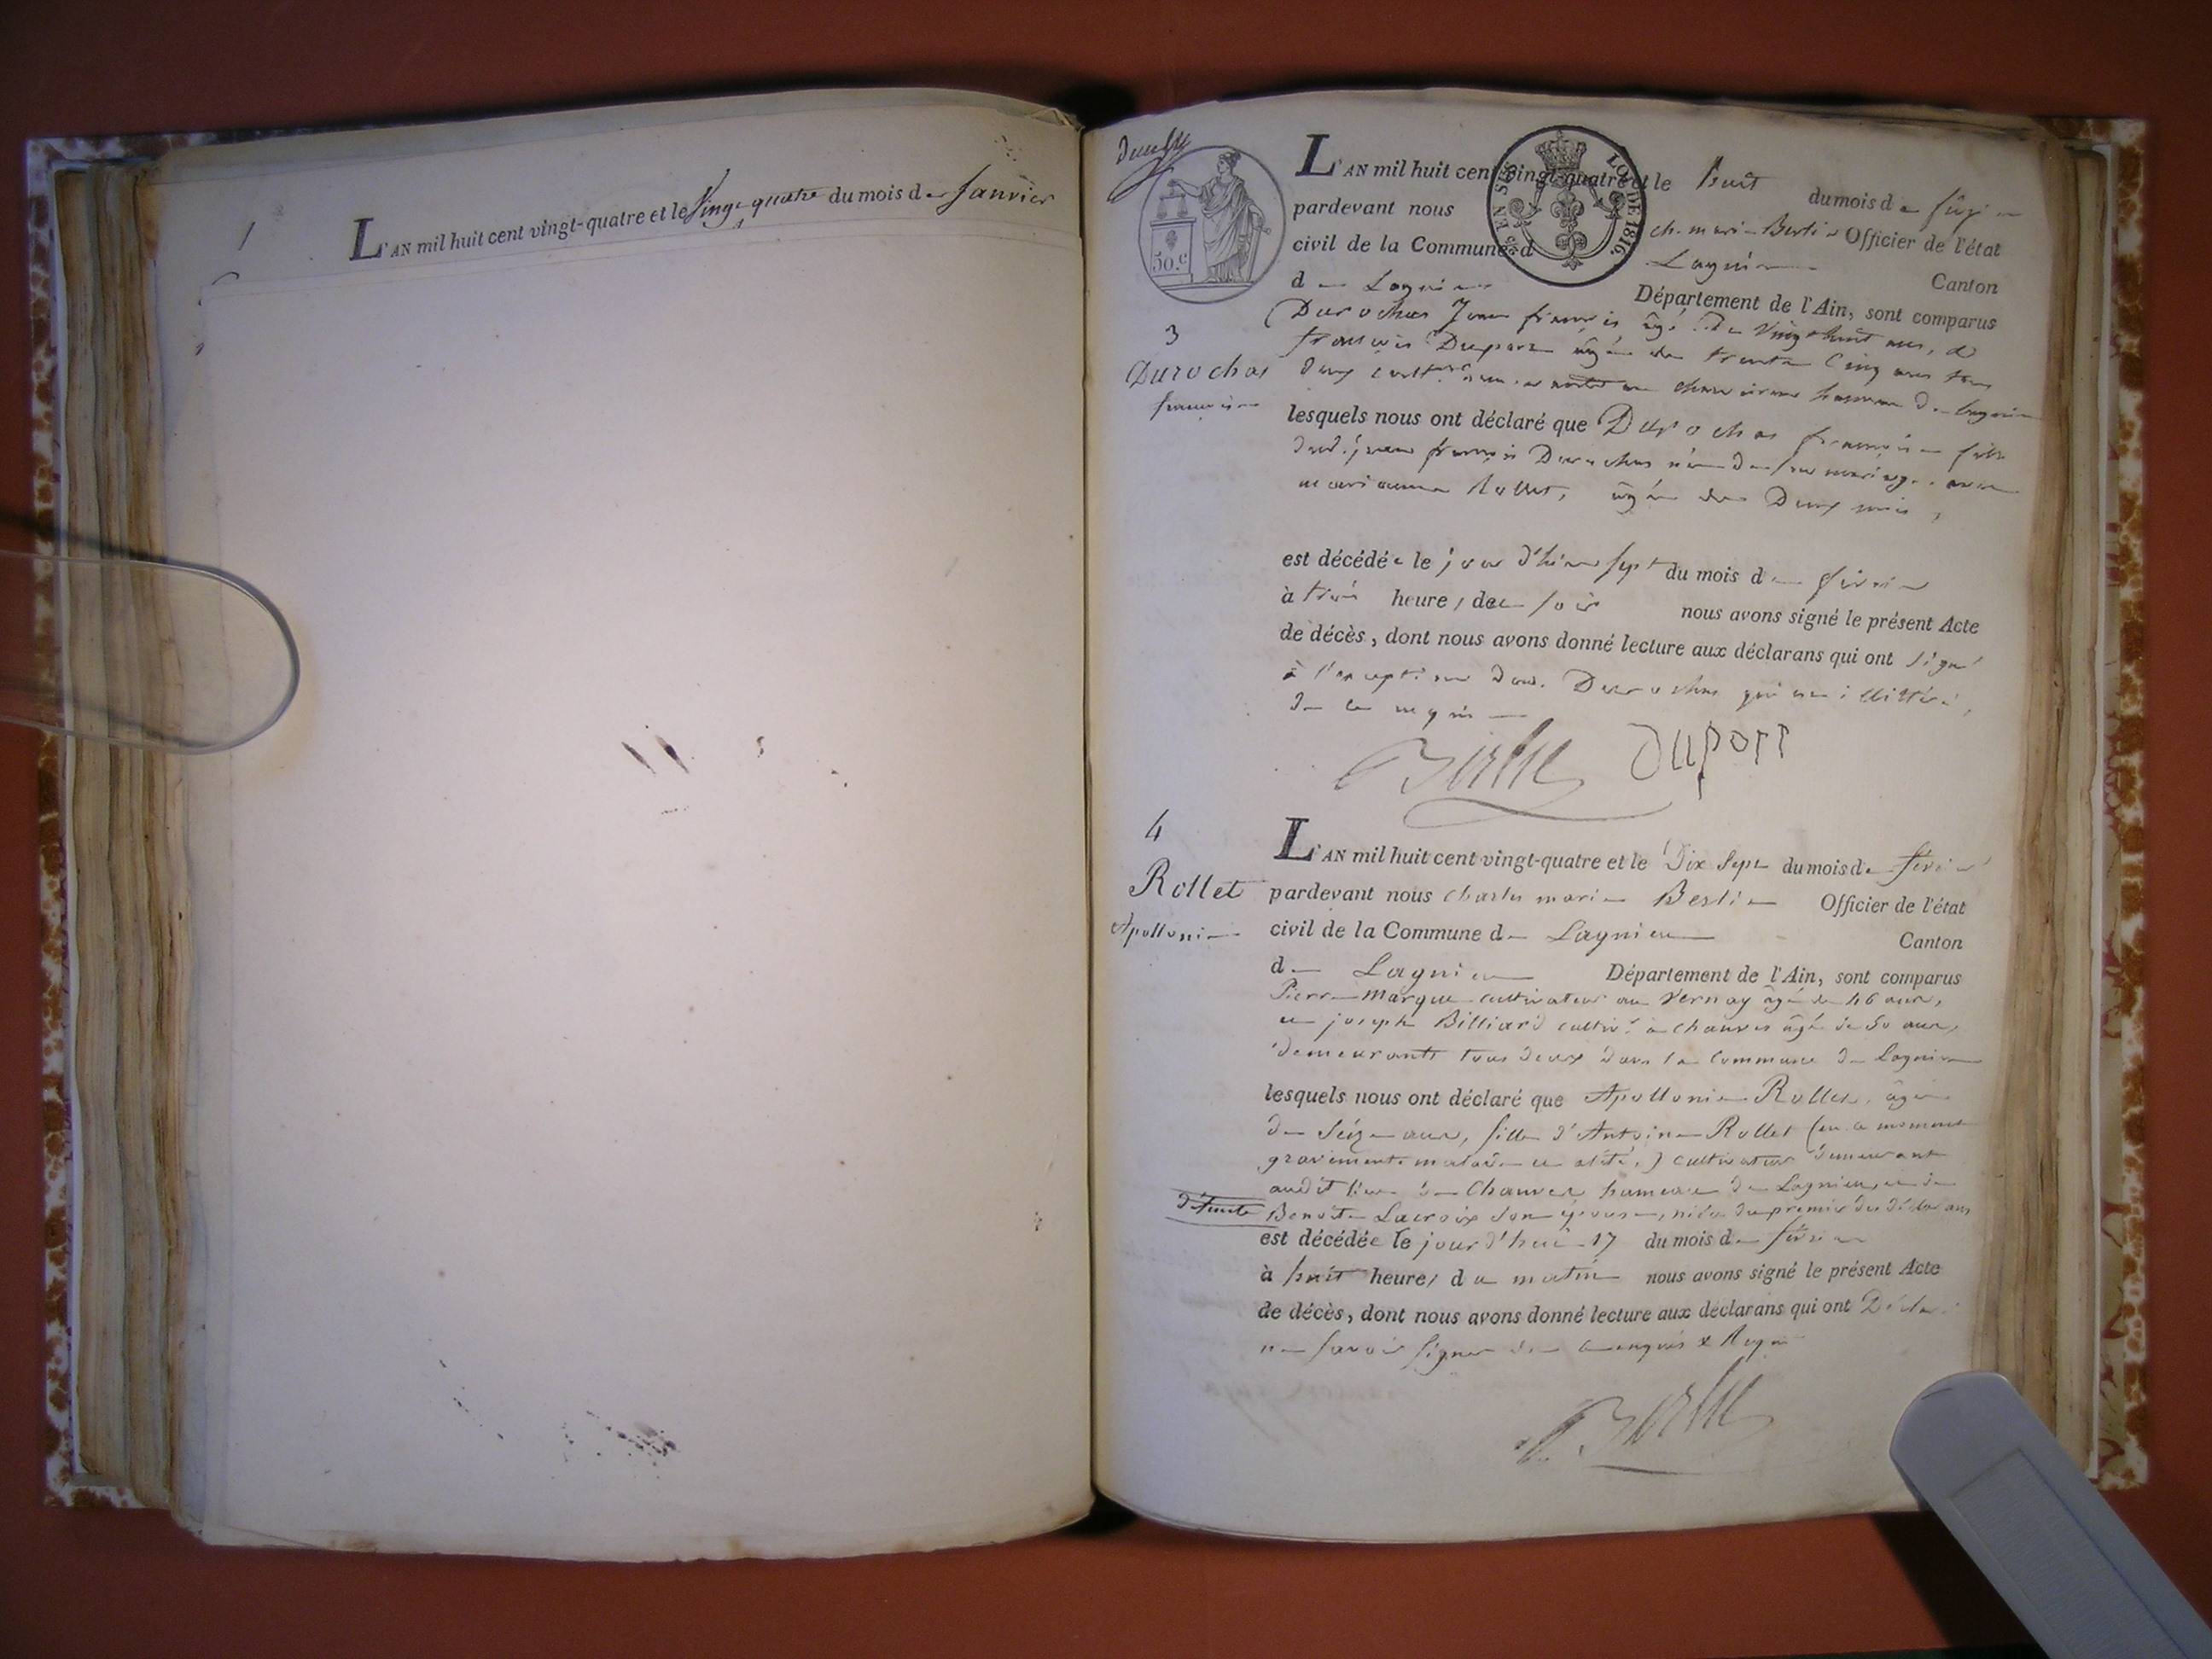 1
L'AN mil huit cent vingt-quatre et le Vingt quatre du mois de Janvier
50.c
EN SUS
LOI DE 1816.
L'AN mil huit cent vingt-quatre et le huit du mois de
pardevant nous ch. marie Berlie Officier de l'état
civil de la Commune d Lagnieu Canton
de Lagnieu Département de l'Ain, sont comparus
3
Durochas
françoise
Durochas Jean françois âgé de Vingt huit ans, &
françois Duport âgé de trente Cinq ans tous
deux hameau de Lagnieu
lesquels nous ont déclaré que Durochas françoise fille
dud. jean françois Durochas née de son mariage avec
marianne Rollet, âgée de Deux mois,
est décédée le jour d'hier sept du mois de février
à trois heures du soir nous avons signé le présent Acte
de décès, dont nous avons donné lecture aux déclarans qui ont signé
à l'exception dud. Durochas qui illitéré,
de ce requis
Berlie Duport
4
Rollet
Apollonie
L'AN mil huit cent vingt-quatre et le Dix Sept du mois de février
pardevant nous Charles marie Berlie Officier de l'état
civil de la Commune de Lagnieu Canton
de Lagnieu Département de l'Ain, sont comparus
Pierre Marque cultivateur au Vernay âgé de 46 ans,
et joseph Billiard cultivr. à Chanves âgé de 50 ans,
demeurants tous deux dans la Commune de Lagnieu
lesquels nous ont déclaré que Apollonie Rollet, âgée
de Seize ans, fille d'Antoine Rollet (en ce moment
gravement malade et alité,) cultivateur demeurant
audit lieu de Chanves hameau de Lagnieu, et de
défunte Benoite Lacroix son épouse, nièce du premier des déclarans
est décédée le jourd'hui 17 du mois de février
à huit heures du matin nous avons signé le présent Acte
de décès, dont nous avons donné lecture aux déclarans qui ont Déclaré
ne savoir signer de ce enquis & Requis
Berlie